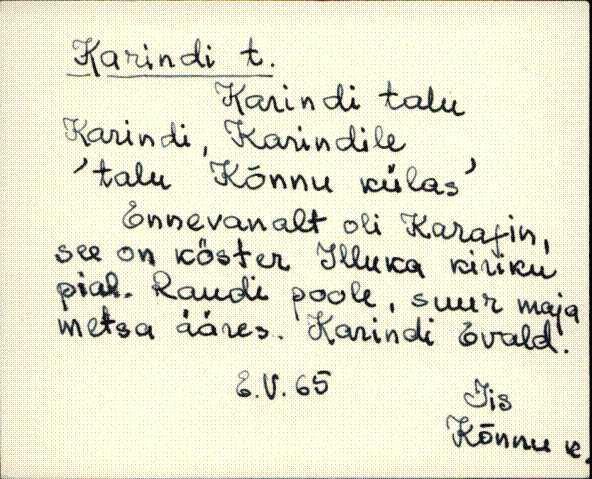 Karindi t.
Karindi talu
Karindi, Karindile
'talu Kõnnu külas'
Ennevanalt oli Karafin,
see on köster Illuka kiriku
pial. Raudi poole, suur maja
metsa ääres. Karindi Evald.
E.V. 65
Jis
Kõnnu k.